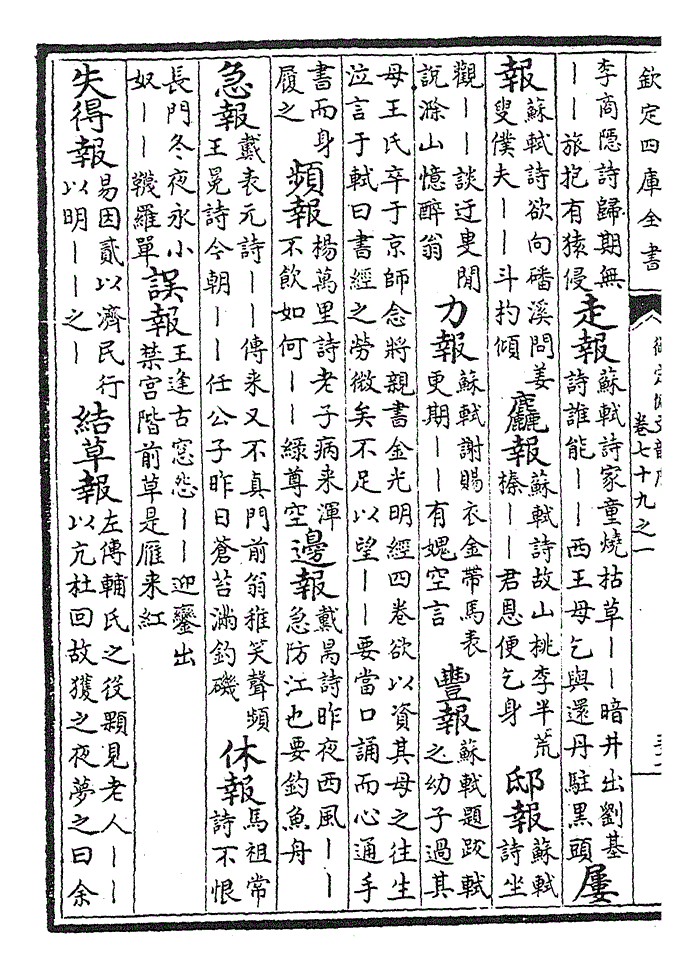 欽定四庫全書
卷七十九之一
李商隱詩歸期無
——旅抱有猿侵
走報
蘇軾詩家童燒枯草——暗井出劉基
詩誰能——西王母乞與還丹駐黑頭
屢
報
蘇軾詩欲向磻溪問姜
叟僕夫——斗杓傾
麤報
蘇軾詩故山桃李半荒
榛——君恩便乞身
邸報
蘇軾
詩坐
觀——談迂叟閒
說滁山憶醉翁
力報
蘇軾謝賜衣金帶馬表
更期——有媿空言
豐報
蘇軾題跋軾
之幼子過其
母王氏卒于京師念將親書金光明經四卷欲以資其母之往生
泣言于軾曰書經之勞微矣不足以望——要當口誦而心通手
書而身
履之
頻報
楊萬里詩老子病来渾
不飲如何——綠尊空
邊報
戴昺詩昨夜西風——
急防江也要釣魚舟
急報
戴表元詩——傳来又不真門前翁稚笑聲頻
王冕詩今朝——任公子昨日蒼苔滿釣磯
休報
馬祖常
詩不恨
長門冬夜永小
奴——韈羅單
誤報
王逢古宫怨——迎鑾出
禁宫階前草是雁来紅
失得報
易因貳以濟民行
以明——之—
結草報
左傳輔氏之役顆見老人——
以亢杜回故獲之夜夢之曰余